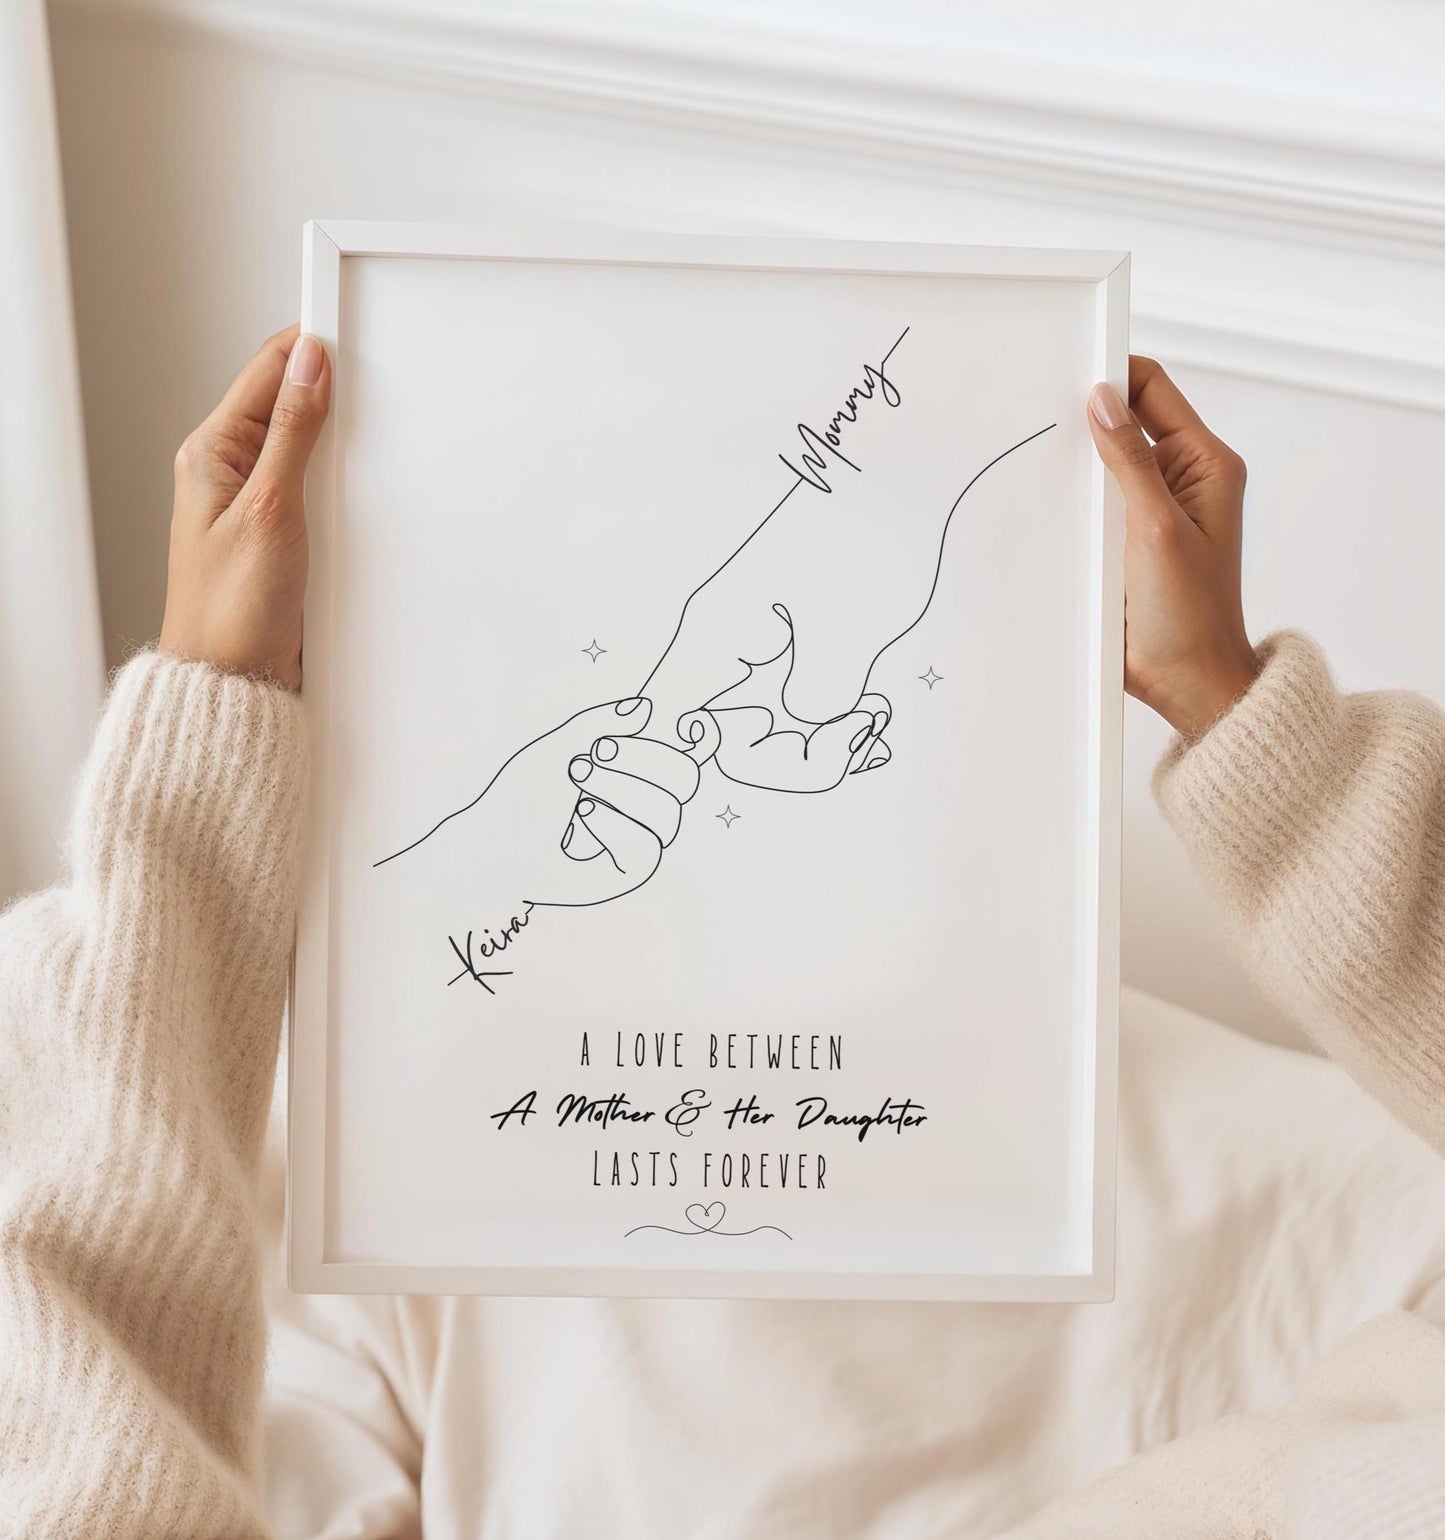 Mommy
Keira
A LOVE BETWEEN
A Mother & Her Daughter
LASTS FOREVER